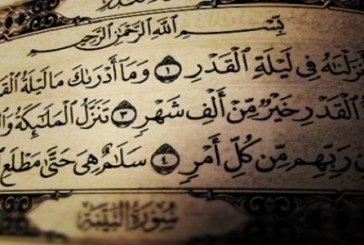 بِسْمِ اللَّهِ الرَّحْمَٰنِ الرَّحِيمِ
نزَلْنَٰهُ فِي لَيْلَةِ الْقَدْرِ ١ وَمَا أَدْرَىٰكَ مَا لَيْلَةُ الْقَدْ
الْقَدْرِ خَيْرٌ مِّنْ أَلْفِ شَهْرٍ ٣ تَنَزَّلُ الْمَلَٰٓئِكَةُ وَال
رَبِّهِم مِّن كُلِّ أَمْرٍ ٤ سَلَٰمٌ هِيَ حَتَّىٰ مَطْلَعِ
سُورَةُ الْبَيِّنَةِ